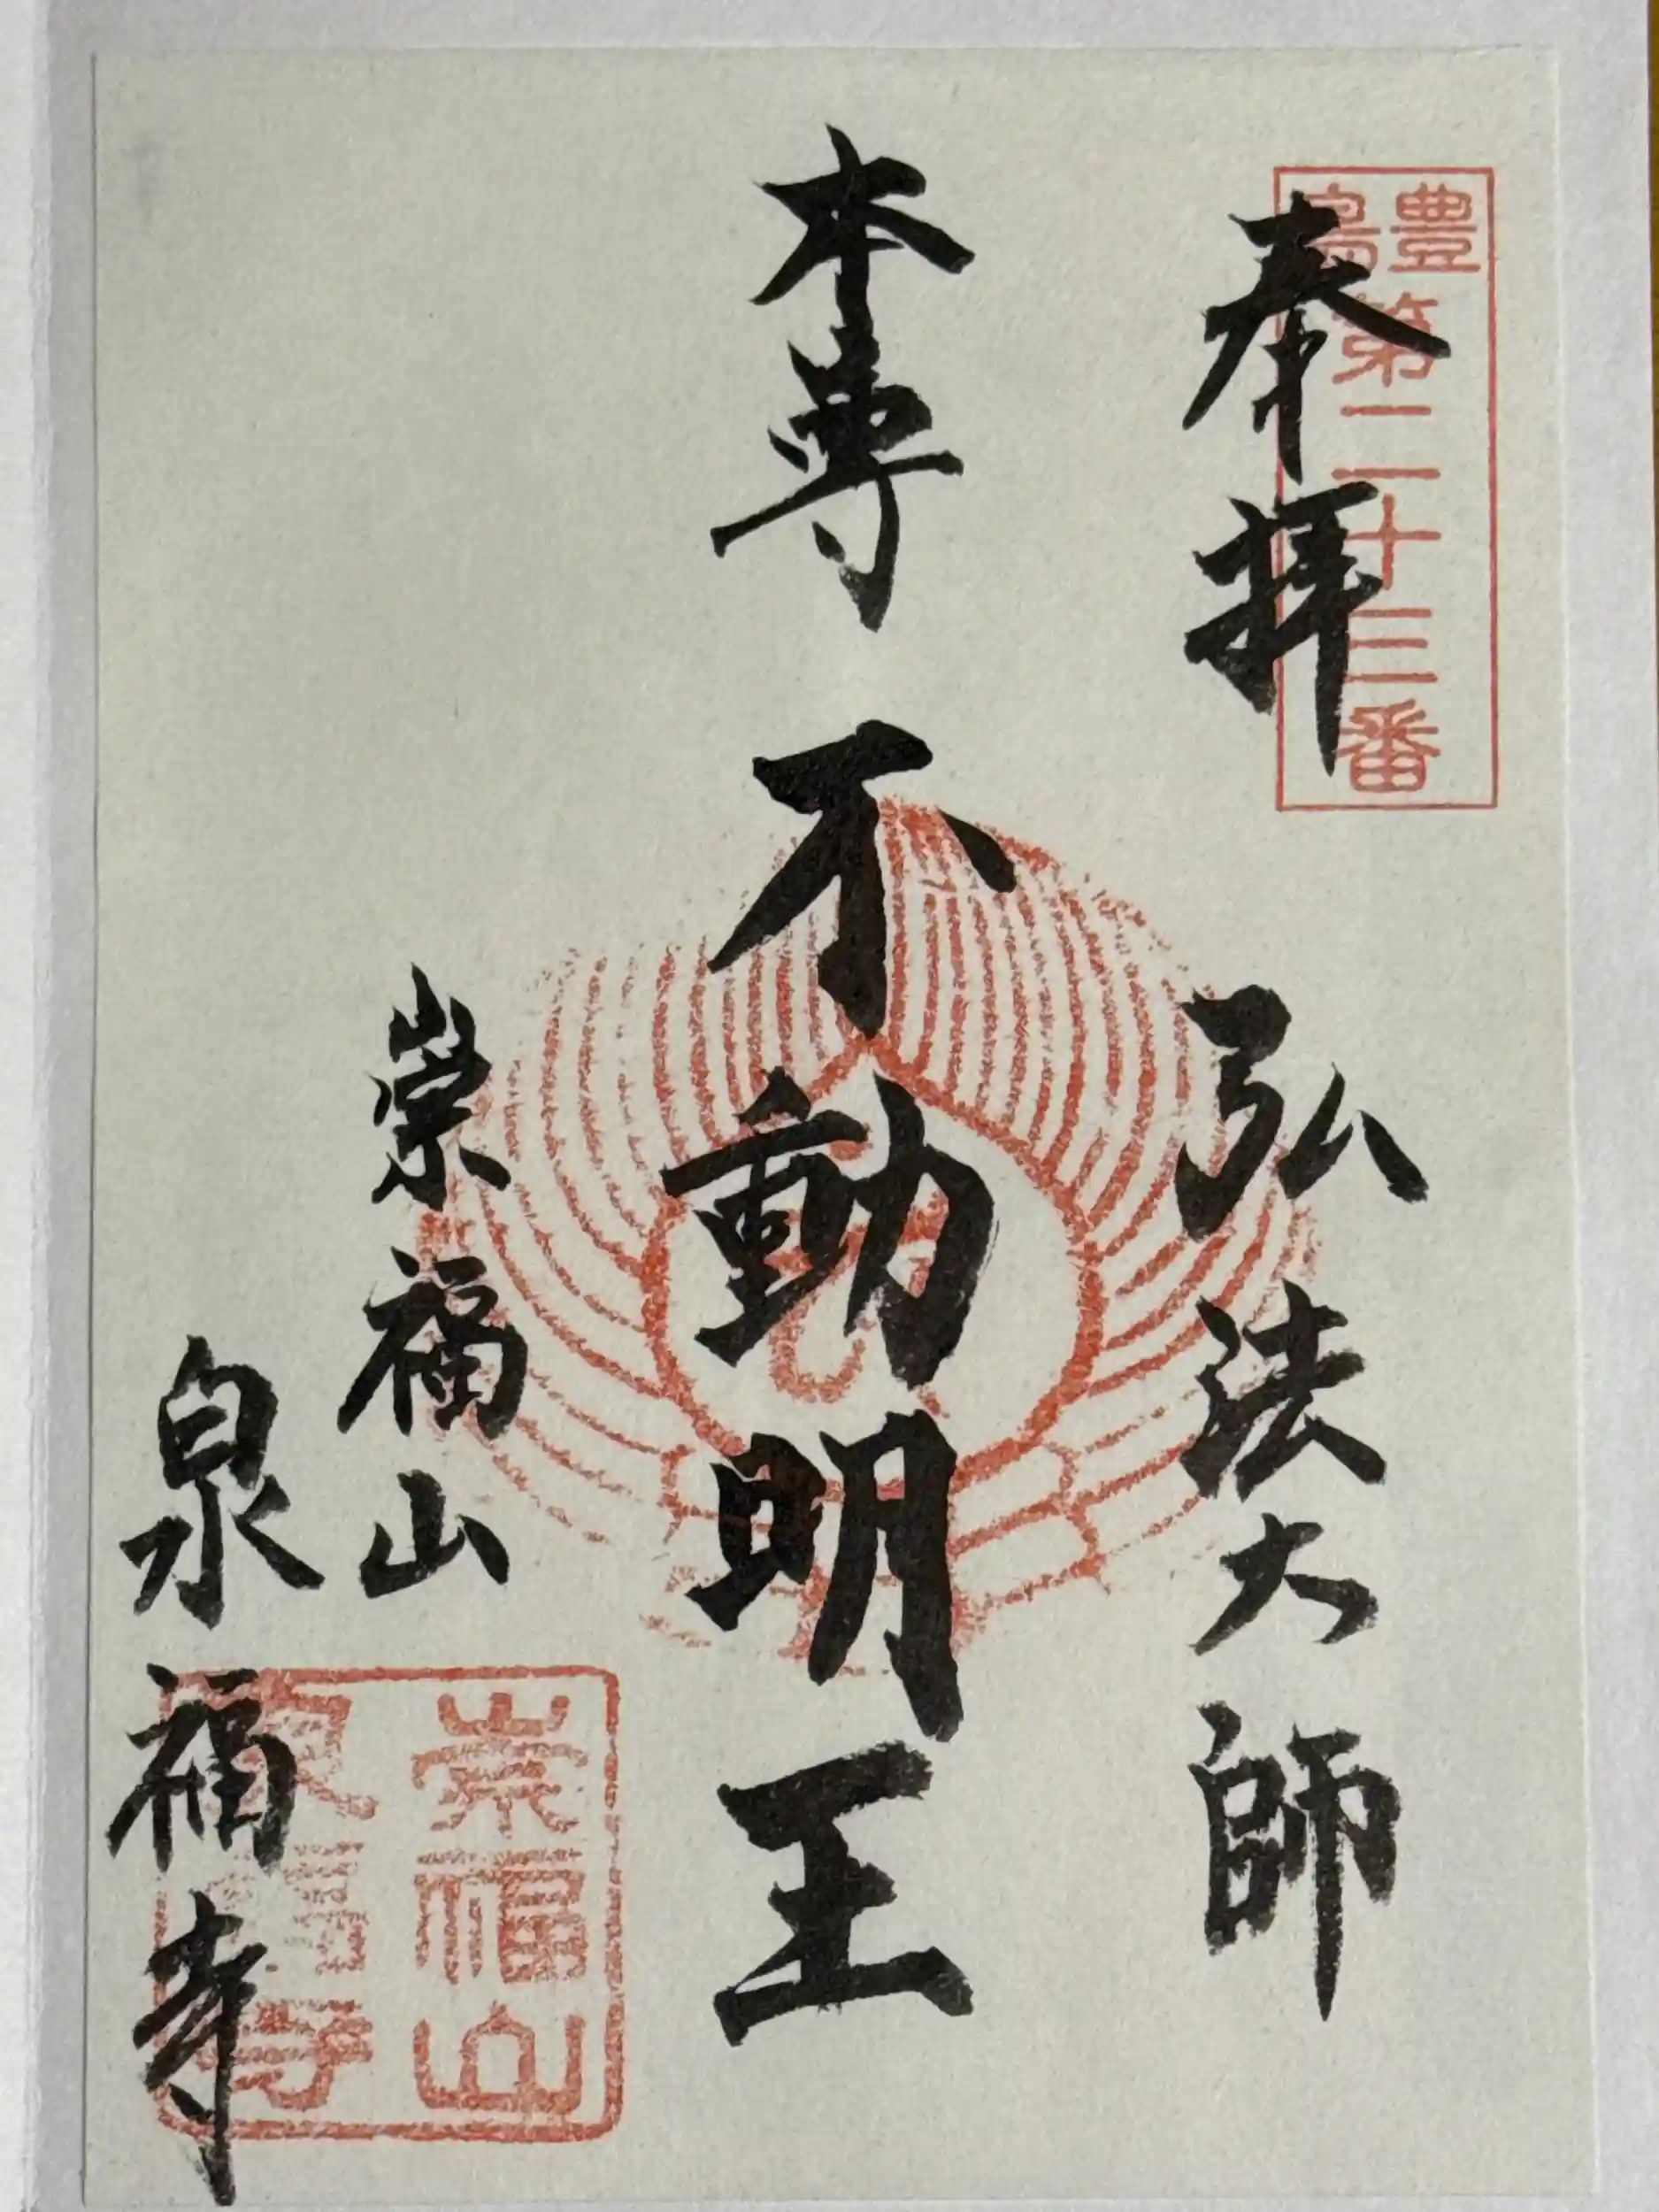 豊島第二十三番
奉拝 弘法大師
本尊 不動明王
崇福山
泉福寺
崇福山
泉福寺